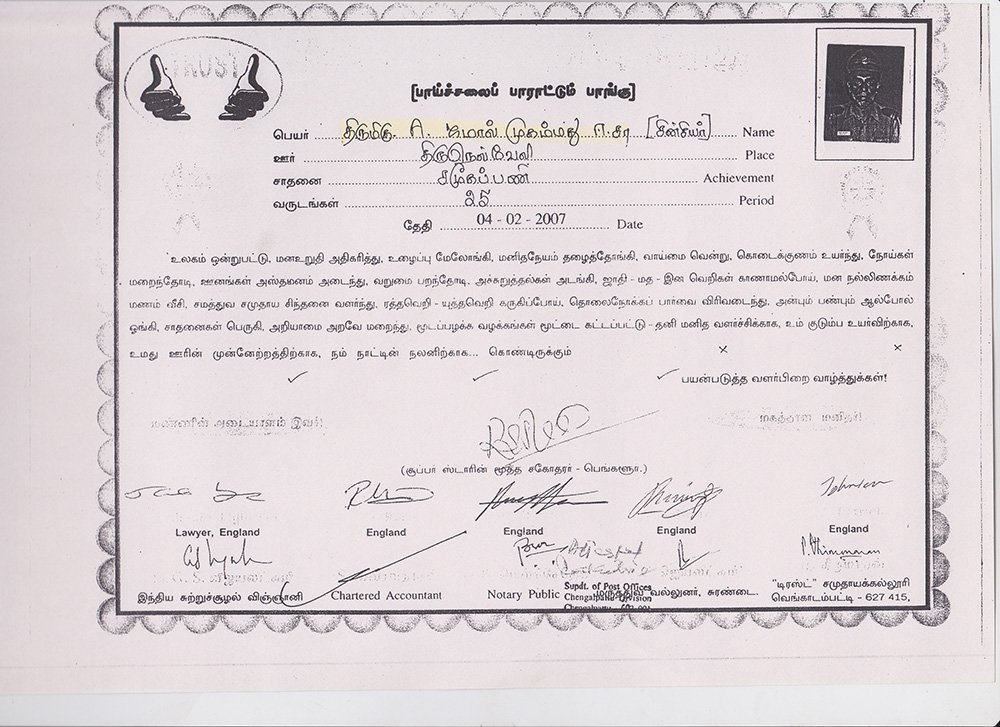 TRUST
[பாய்ச்சலைப் பாராட்டும் பாங்கு]
பெயர் திருமிகு. A. ஜமால் முகம்மது ஈ.சா [சின்சியர்] Name
ஊர் திருநெல்வேலி Place
சாதனை சமூகப்பணி Achievement
வருடங்கள் 25 Period
தேதி 04 - 02 - 2007 Date
உலகம் ஒன்றுபட்டு, மனஉறுதி அதிகரித்து, உழைப்பு மேலோங்கி, மனிதநேயம் தழைத்தோங்கி, வாய்மை வென்று, கொடைக்குணம் உயர்ந்து, நோய்கள்
மறைந்தோடி, ஊனங்கள் அஸ்தமனம் அடைந்து, வறுமை பறந்தோடி, அச்சுறுத்தல்கள் அடங்கி, ஜாதி - மத - இன வெறிகள் காணாமல்போய், மன நல்லிணக்கம்
மணம் வீசி, சமத்துவ சமுதாய சிந்தனை வளர்ந்து, ரத்தவெறி - யுத்தவெறி கருகிப்போய், தொலைநோக்கப் பார்வை விரிவடைந்து, அன்பும் பண்பும் ஆல்போல்
ஓங்கி, சாதனைகள் பெருகி, அறியாமை அறவே மறைந்து, மூடப்பழக்க வழக்கங்கள் மூட்டை கட்டப்பட்டு - தனி மனித வளர்ச்சிக்காக, உம் குடும்ப உயர்விற்காக,
உமது ஊரின் முன்னேற்றத்திற்காக, நம் நாட்டின் நலனிற்காக... கொண்டிருக்கும்
பயன்படுத்த வளர்பிறை வாழ்த்துக்கள்!
மண்ணின் அடையாளம் இவர்! மகத்தான மனிதர்!
(சூப்பர் ஸ்டாரின் மூத்த சகோதரர் - பெங்களூர்.)
Lawyer, England England England England England
இந்திய சுற்றுச்சூழல் விஞ்ஞானி Chartered Accountant Notary Public
Supdt. of Post Offices
Chengalpattu Division
மருத்துவ வல்லுனர், சுரண்டை.
"டிரஸ்ட்" சமுதாயக்கல்லூரி
வெங்காடம்பட்டி - 627 415.